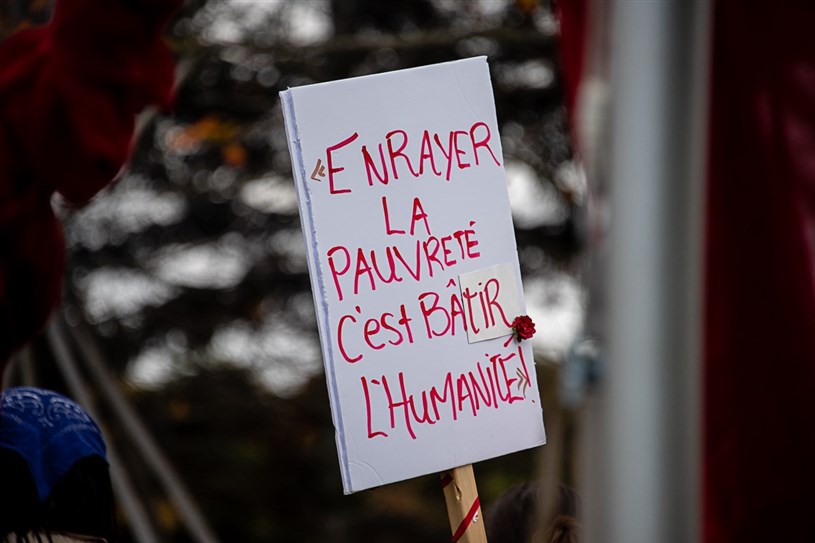 « ENRAYER
LA
PAUVRETÉ
C'EST BÂTIR
L'HUMANITÉ » !